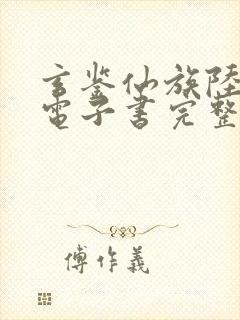 玄鉴仙族陸
電子書完整
傅作義